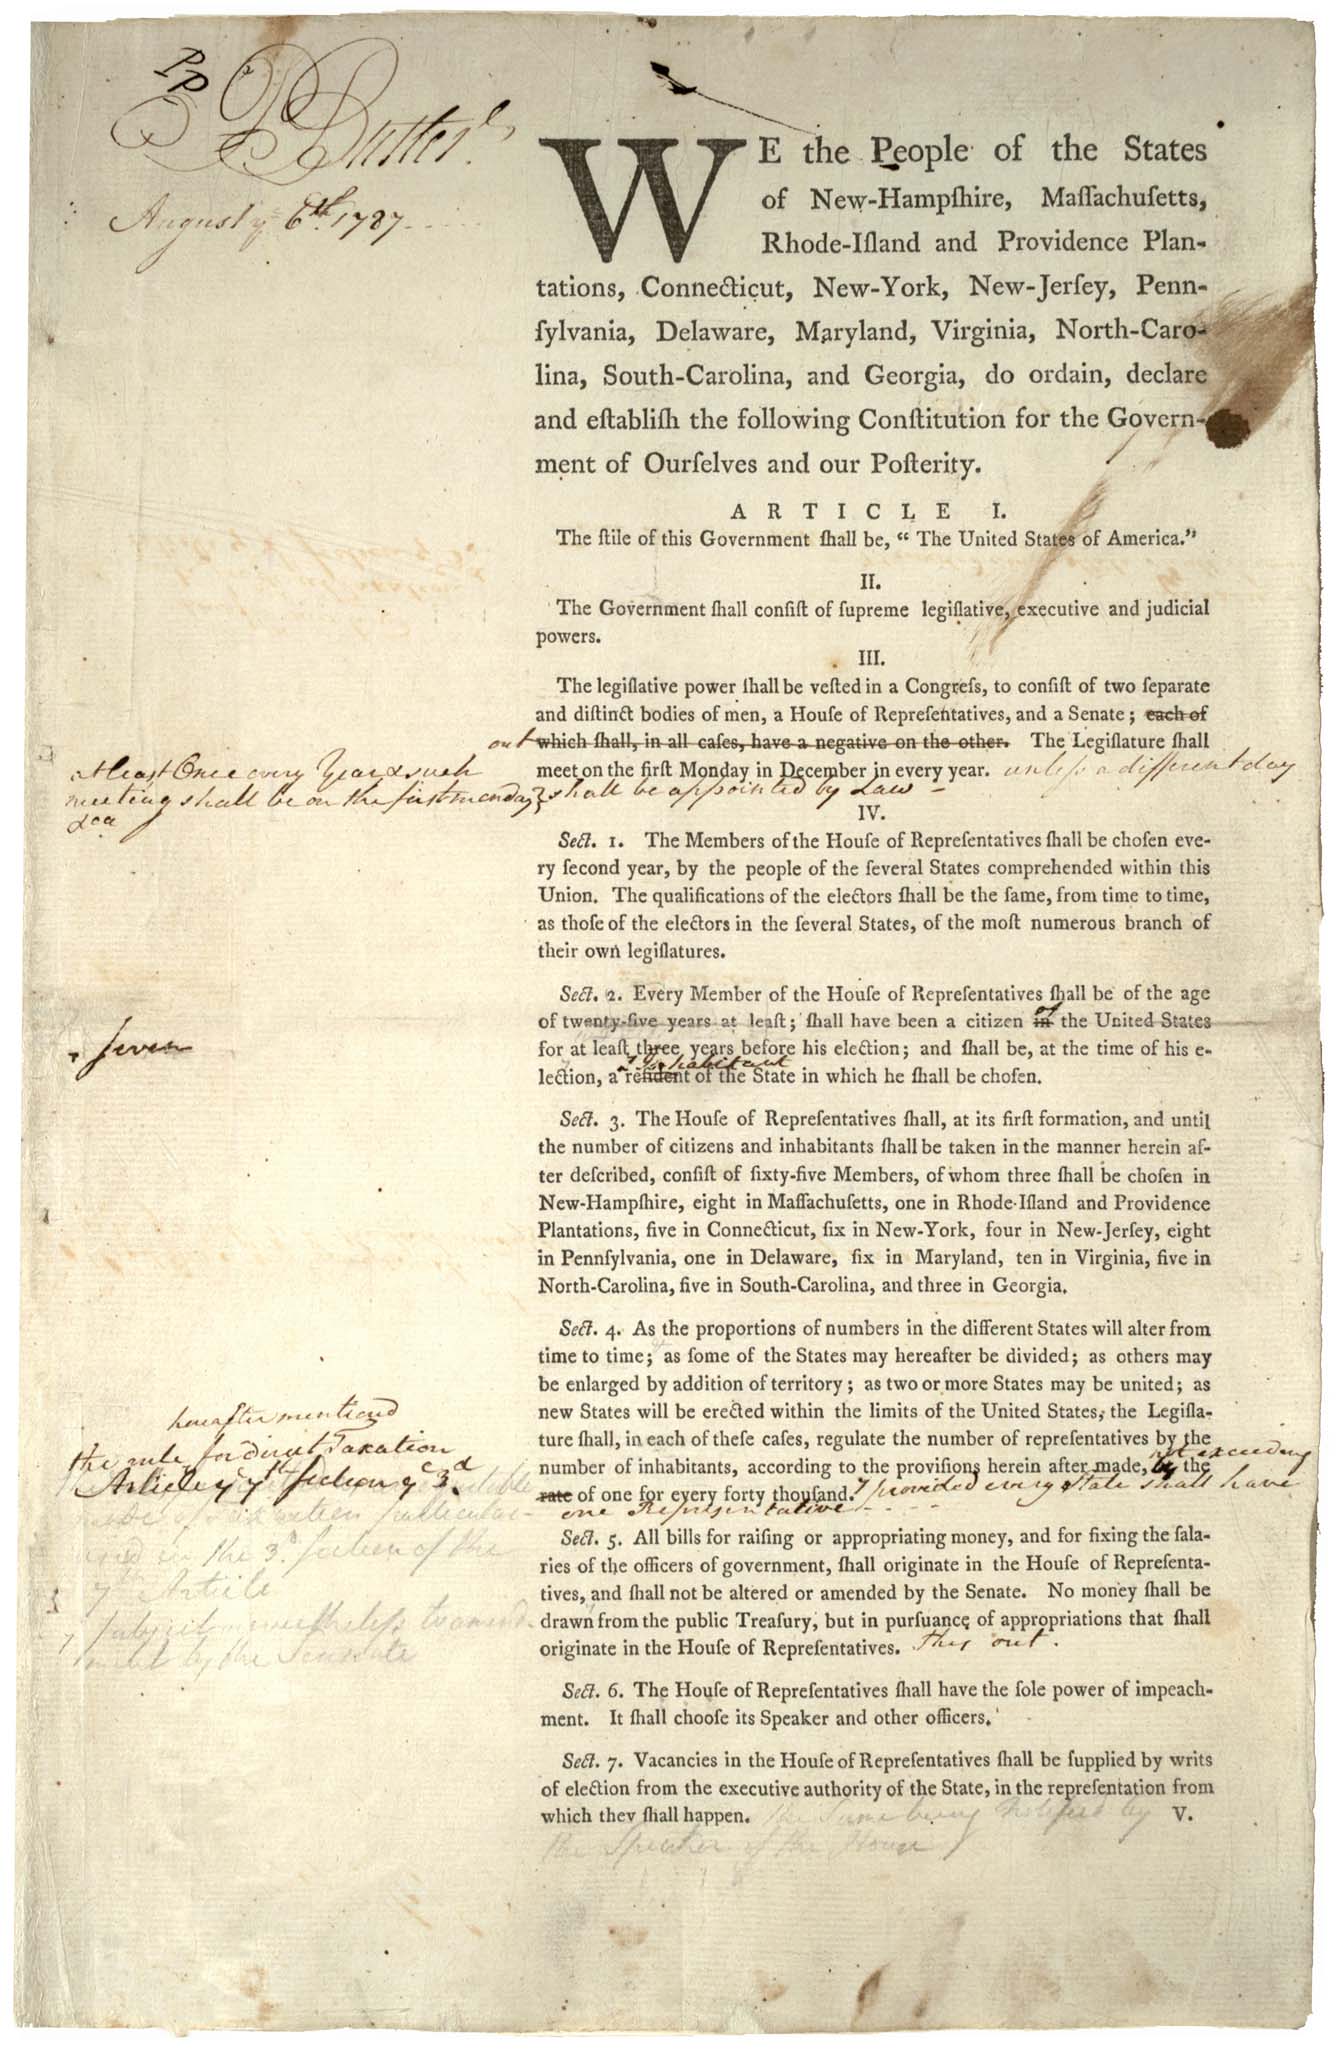 P. Butler
August yᵉ 6th. 1787
WE the People of the States
of New-Hampſhire, Maſſachuſetts,
Rhode-Iſland and Providence Plan-
tations, Connecticut, New-York, New-Jerſey, Penn-
ſylvania, Delaware, Maryland, Virginia, North-Caro-
lina, South-Carolina, and Georgia, do ordain, declare
and eſtabliſh the following Conſtitution for the Govern-
ment of Ourſelves and our Poſterity.
ARTICLE I.
The ſtile of this Government ſhall be, “ The United States of America.”
II.
The Government ſhall conſiſt of ſupreme legiſlative, executive and judicial
powers.
III.
The legiſlative power ſhall be veſted in a Congreſs, to conſiſt of two ſeparate
and diſtinct bodies of men, a Houſe of Repreſentatives, and a Senate; each of
out which ſhall, in all caſes, have a negative on the other. The Legiſlature ſhall
meet on the firſt Monday in December in every year. unleſs a different day
ſhall be appointed by Law
at least Once every Year & such
meeting shall be on the first monday
&ca
IV.
Sect. 1. The Members of the Houſe of Repreſentatives ſhall be choſen eve-
ry ſecond year, by the people of the ſeveral States comprehended within this
Union. The qualifications of the electors ſhall be the ſame, from time to time,
as thoſe of the electors in the ſeveral States, of the moſt numerous branch of
their own legiſlatures.
Sect. 2. Every Member of the Houſe of Repreſentatives ſhall be of the age
of
of twenty-five years at leaſt; ſhall have been a citizen in the United States
seven
for at leaſt three years before his election; and ſhall be, at the time of his e-
Inhabitant
lection, a reſident of the State in which he ſhall be choſen.
Sect. 3. The Houſe of Repreſentatives ſhall, at its firſt formation, and until
the number of citizens and inhabitants ſhall be taken in the manner herein af-
ter deſcribed, conſiſt of ſixty-five Members, of whom three ſhall be choſen in
New-Hampſhire, eight in Maſſachuſetts, one in Rhode-Iſland and Providence
Plantations, five in Connecticut, ſix in New-York, four in New-Jerſey, eight
in Pennſylvania, one in Delaware, ſix in Maryland, ten in Virginia, five in
North-Carolina, five in South-Carolina, and three in Georgia.
Sect. 4. As the proportions of numbers in the different States will alter from
time to time; as ſome of the States may hereafter be divided; as others may
be enlarged by addition of territory; as two or more States may be united; as
new States will be erected within the limits of the United States, the Legiſla-
ture ſhall, in each of theſe caſes, regulate the number of repreſentatives by the
not exceeding
number of inhabitants, according to the proviſions herein after made, by the
rate of one for every forty thouſand. provided every State shall have
one Representative
hereafter mentioned
the rule for direct Taxation
Article yᵉ 7th section yᵉ 3d.
in the 3d. section of the
7th Article
subject nevertheless to amend-
ment by the Senate
Sect. 5. All bills for raiſing or appropriating money, and for fixing the ſala-
ries of the officers of government, ſhall originate in the Houſe of Repreſenta-
tives, and ſhall not be altered or amended by the Senate. No money ſhall be
drawn from the public Treaſury, but in purſuance of appropriations that ſhall
originate in the Houſe of Repreſentatives. this out.
Sect. 6. The Houſe of Repreſentatives ſhall have the ſole power of impeach-
ment. It ſhall chooſe its Speaker and other officers.
Sect. 7. Vacancies in the Houſe of Repreſentatives ſhall be ſupplied by writs
of election from the executive authority of the State, in the repreſentation from
which they ſhall happen. the same being notified by V.
the Speaker of the House